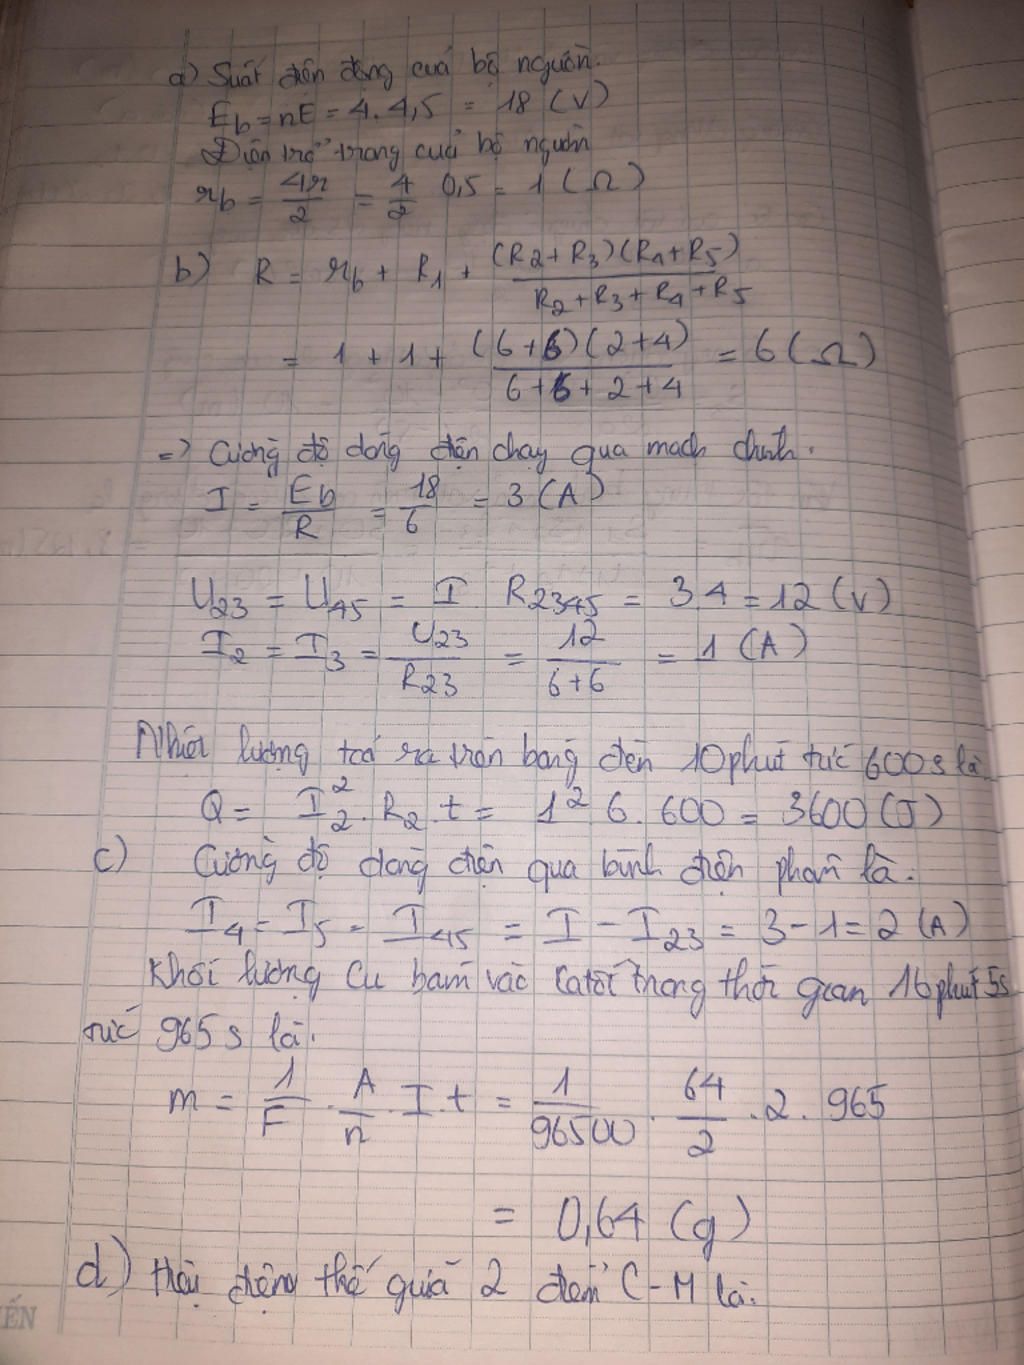 a) Suất điện động của bộ nguồn.
Eb = nE = 4. 4,5 = 18 (V)
Điện trở trong của bộ nguồn
rb = 4r/2 = 4/2 0,5 = 1 (Ω)
b) R = rb + R1 + (R2+R3)(R4+R5)/R2+R3+R4+R5
= 1 + 1 + (6+6)(2+4)/6+6+2+4 = 6 (Ω)
=> Cường độ dòng điện chạy qua mạch chính.
I = Eb/R = 18/6 = 3 (A)
U23 = U45 = I R2345 = 3.4 = 12 (V)
I2 = I3 = U23/R23 = 12/6+6 = 1 (A)
Nhiệt lượng toả ra trên bóng đèn 10 phút tức 600s là
Q = I2². R2. t = 1² 6. 600 = 3600 (J)
c) Cường độ dòng điện qua bình điện phân là.
I4 = I5 = I45 = I - I23 = 3 - 1 = 2 (A)
Khối lượng Cu bám vào Catốt trong thời gian 16 phút 5s
tức 965 s là.
m = 1/F . A/n . I. t = 1/96500 . 64/2 . 2. 965
= 0,64 (g)
d) Hiệu điện thế giữa 2 điểm C - M là.
ẾN